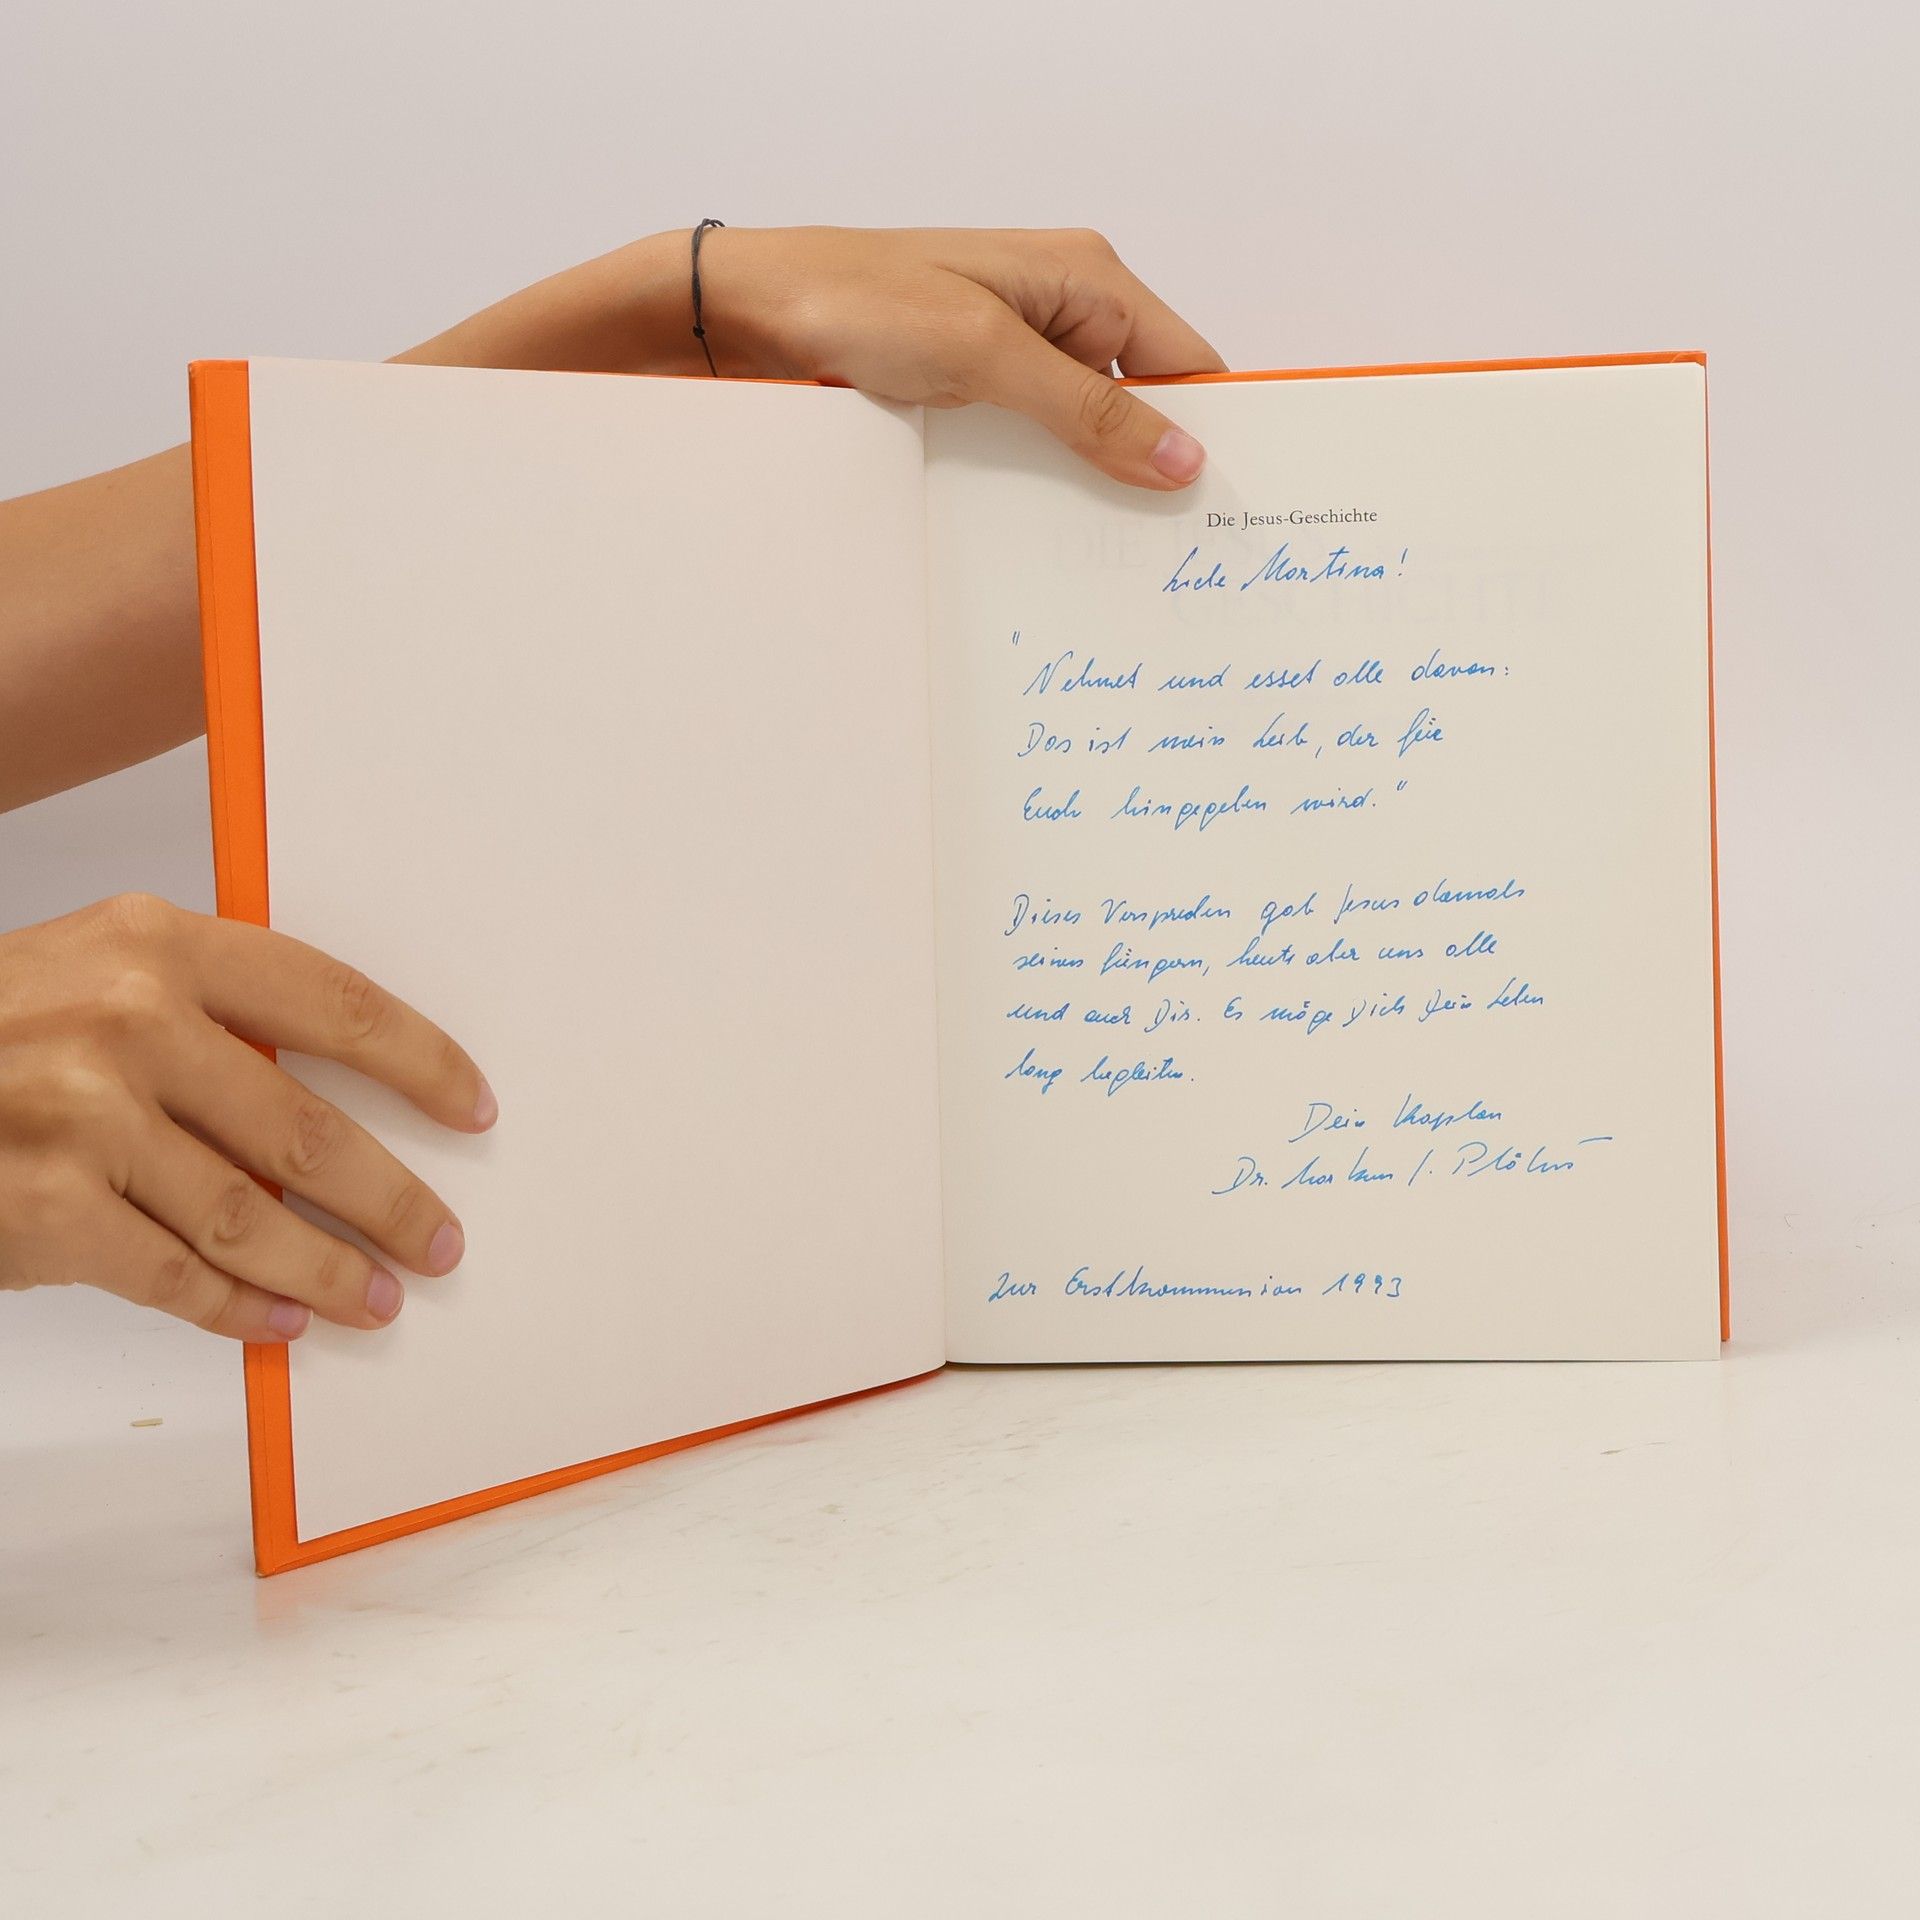 Die Jesus-Geschichte
Liebe Martina!
"
Nehmet und esset alle davon:
Das ist mein Leib, der für
Euch hingegeben wird."
Dieses Versprechen gab Jesus damals
seinen Jüngern, heute aber uns alle
und auch Dir. Es möge Dich Dein Leben
lang begleiten.
Dein Kaplan
Dr. Markus J.
Zur Erstkommunion 1993